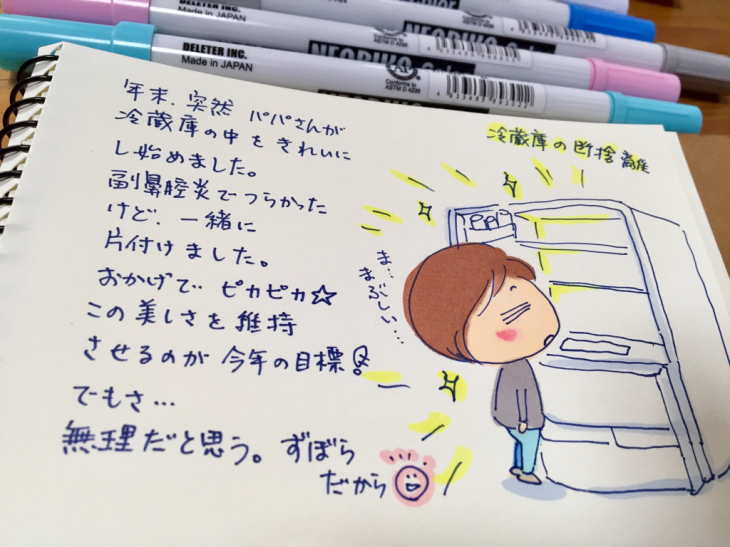 DELETER INC.
Made in JAPAN
NEOPIKO-Color
Conforms to
ASTM D 4236
DELETER INC.
Made in JAPAN
NEOPIKO-Color
Conforms to
ASTM D 4236
年末、突然 パパさんが
冷蔵庫の中をきれいに
し始めました。
副鼻腔炎でつらかった
けど、一緒に
片付けました。
おかげで ピカピカ☆
この美しさを維持
させるのが今年の目標!
でもさ…
無理だと思う。ずぼら
だから
冷蔵庫の断捨離
ま…
まぶしい…